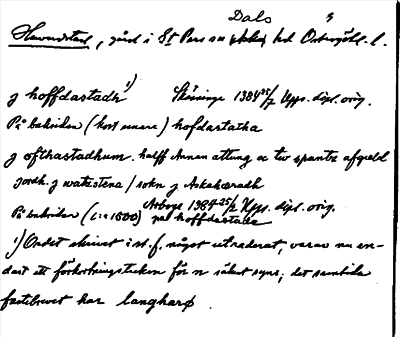 Dals
Havredstad, gård i St Pers sn hd Östergötl. l.
j hoffdastadh 1) Skänninge 1384 25/2 Upps. dipl. orig.
På baksidan (kort senare) hofdastatha
j offthastadhum. halff annan attung oc tw spanz afgeld
jordh. j watzstena / sokn j Askahæradh
Arboga 1384 25/2 Upps. dipl. orig.
På baksidan (c:a 1500) hoffdastada
1) Ordet skrivet i st. f. något utraderat, varav nu en-
dast ett förkortningstecken för n säkert syns; det samtida
fastebrevet har langharø.